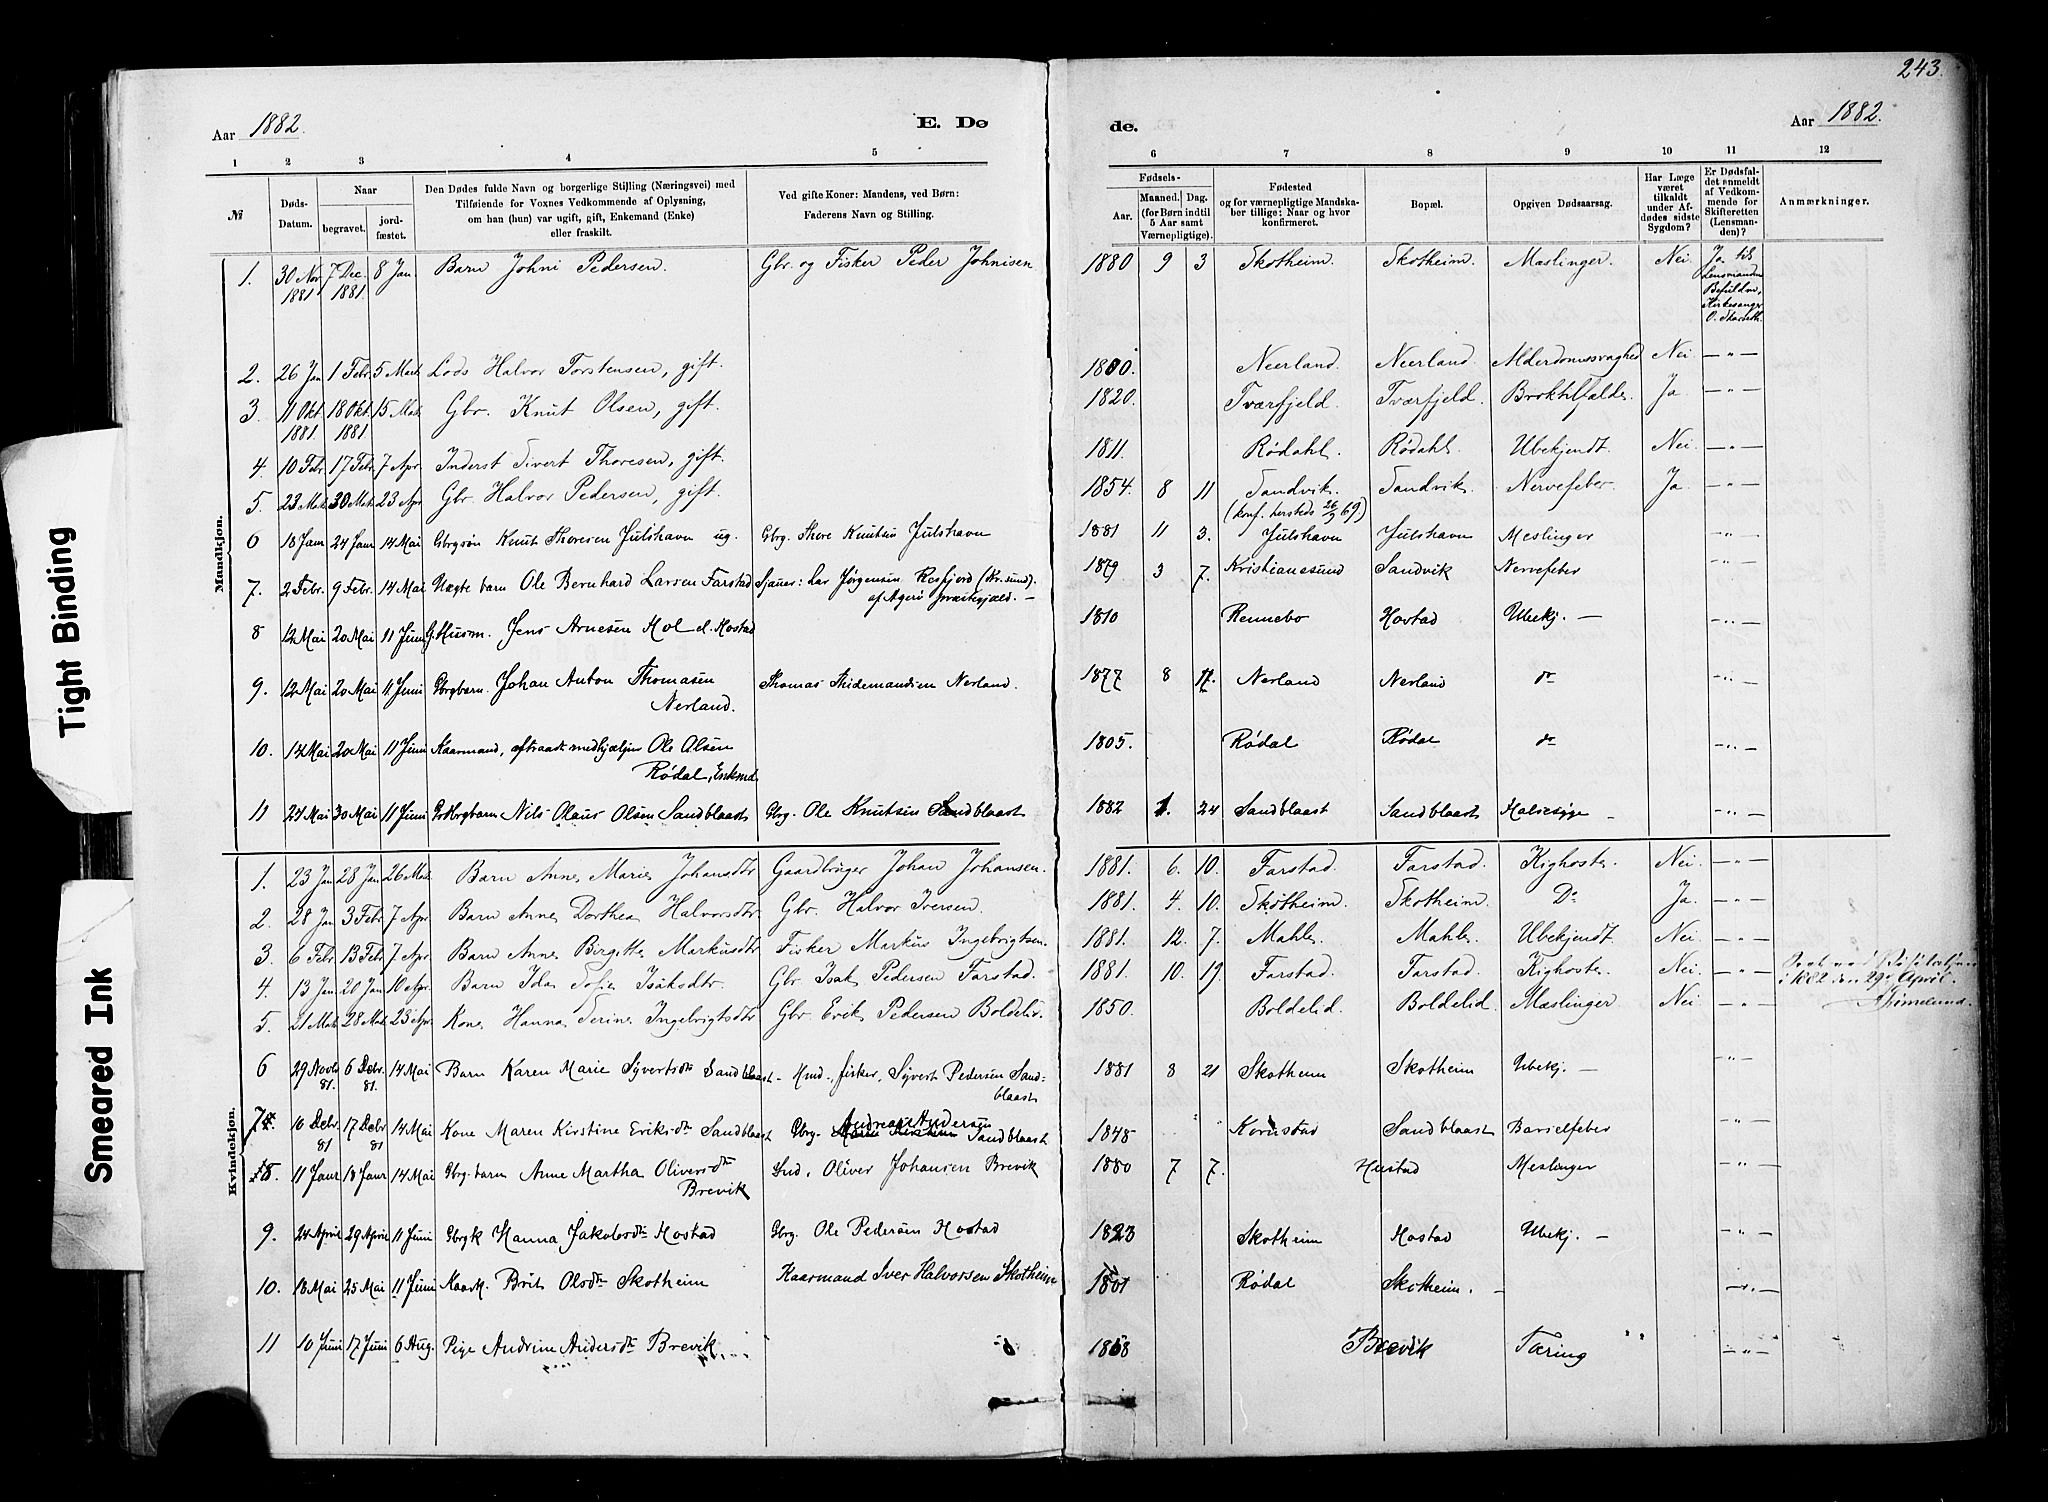 243.
Aar 1882.
E. Dø
de.
Aar 1882.
1 2 3 4 5 6 7 8 9 10 11 12
№
Døds-Datum.
Naar
begravet.
jord-fæstet.
Den Dødes fulde Navn og borgerlige Stilling (Næringsvei) med
Tilføiende for Voxnes Vedkommende af Oplysning,
om han (hun) var ugift, gift, Enkemand (Enke)
eller fraskilt.
Ved gifte Koner: Mandens, ved Børn:
Faderens Navn og Stilling.
Fødsels-
Aar.
Maaned. Dag.
(for Børn indtil
5 Aar samt
Værnepligtige).
Fødested
og for værnepligtige Mandska-
ber tillige: Naar og hvor
konfirmeret.
Bopæl.
Opgiven Dødsaarsag.
Har Læge
været
tilkaldt
under Af-
dødes sidste
Sygdom?
Er Dødsfal-
det anmeldt
af Vedkom-
mende for
Skifteretten
(Lensman-
den)?
Anmærkninger.
Mandkjøn.
1. 30 Nov 1881 7 Dec. 1881. 8 Jan Barn Johni Pedersen. Gbr. og Fisker Peder Johnisen 1880 9 3 Skotheim. Skotheim. Mæslinger. Nei. Ja til Lensmanden
2. 26 Jan 1 Febr. 5 Mart. Lods Halvor Torstensen, gift. 1800. Neerland. Neerland. Alderdomssvaghed Nei. — " —
3. 11 Okt. 1881. 18 Okt. 1881. 15 Mart. Gbr. Knut Olsen, gift. 1820. Tværfjeld. Tværfjeld. Broktilfælde. Ja — " —
4. 10 Febr. 17 Febr. 7 Apr. Inderst Sivert Thoresen, gift. 1811. Rødahl. Rødahl. Ubekjendt. Nei. — " —
5. 23 Mart. 30 Mart. 23 Apr. Gbr. Halvor Pedersen, gift. 1854. 8 11 Sandvik. Sandvik. Nervefeber. Ja. — " —
(konf. hersteds 26/9 69.)
6 18 Janr 24 Janr 14 Mai Gbrgsøn Knut Thoresen Julshavn ug. Gbrg. Thore Knutsen Julshavn 1881 11 3. Julshavn Julshavn Meslinger — " —
7. 2 Febr. 9 Febr. 14 Mai Uægte barn Ole Bernhard Larsen Farstad Sjauer: Lar Jørgensen Resfjord (Kr.sund). 1879 3 7. Kristianssund Sandvik Nervefeber — " —
af Agerø præstegjæld. —
8 12 Mai 20 Mai 11 Juni G. Husm. Jens Arnesen Hol e. Hostad 1810 Rennebo Hostad Ubekj. — — " —
9. 12 Mai 20 Mai 11 Juni Gbrgbarn. Johan Anton Thomasen Thomas Thidemandsen Nerland. 1877 8 17. Nerland Nerland do — " —
Nerland.
10. 14 Mai 20 Mai 11 Juni Kaarmand, aftraadt medhjælper Ole Olsen 1805. Rødal Rødal do — " —
Rødal, Enkmd
11 24 Mai 30 Mai 11 Juni Grdbrgbarn Nils Olaus Olsen Sandblaast Gbrg. Ole Knutsen Sandblaast 1882 1. 24 Sandblaast Sandblaast Halsesyge — — " —
Kvindekjøn.
1. 23 Jan 28 Jan 26 Mart. Barn Anne Marie Johansdtr Gaardbruger Johan Johansen. 1881. 6. 10. Farstad. Farstad. Kighoste. Nei — " —
2. 28 Jan 3 Febr. 7 Apr. Barn Anne Dorthea Halvorsdtr Gbr. Halvor Iversen. 1881. 4. 10. Skotheim. Skotheim. Do Ja. — " —
3. 6 Febr. 13 Febr. 7 Apr. Barn Anne Birgitte Markusdtr Fisker Markus Ingebrigtsen. 1881. 12. 7. Mahle. Mahle. Ubekjendt. Nei. — " —
4. 13 Jan 20 Jan 10 Apr. Barn Ida Sofie Isaksdtr. Gbr. Isak Pedersen Farstad. 1881. 10. 19. Farstad. Farstad. Kighoste. Nei — " — 1882 den 29de April.
5. 21 Mart. 28 Mart. 23 Apr. Kone Hanna Serine Ingebrigtsdtr Gbr. Erik Pedersen Boldeliv. 1850. Boldelid. Boldelid. Mæslinger. Nei — " —
6 29 Novbr 81. 6 Decbr. 81. 14 Mai Barn Karen Marie Syvertsdtr Sandblaast Hmd., fisker, Syvert Pedersen Sand-
blaast 1881 3 21 Skotheim Skotheim Ubekj. — — " —
7. 10 Decbr. 81 17 Decbr 81 14 Mai Kone Maren Kirstine Eriksdtr Sandblaast Gbrg. Andreas Andersen Sandblaast 1848 " " Kornstad Sandblaast Barselfeber — " —
8. 11 Janr 18 Janr 14 Mai Gbrg. barn Anne Martha Oliversdtr Smd. Oliver Johansen Brevik 1880 7 7. Hustad Meslinger — " —
Brevik
9. 24 April 29 April 11 Juni Gbrgk Hanna Jakobsdtr Hostad Gbrg. Ole Pedersen Hostad 1823 Skotheim Hostad Ubekj. — — " —
10. 18 Mai 25 Mai 11 Juni Kaark. Brit Olsdtr Skotheim Kaarmand Iver Halvorsen Skotheim 1801 Rødal Skotheim. — — " —
11 10 Juni 17 Juni 6 Aug. Pige Andrine Andersdtr Brevik 1868 Brevik Tæring " " — " —
Tight Binding
Smeared Ink